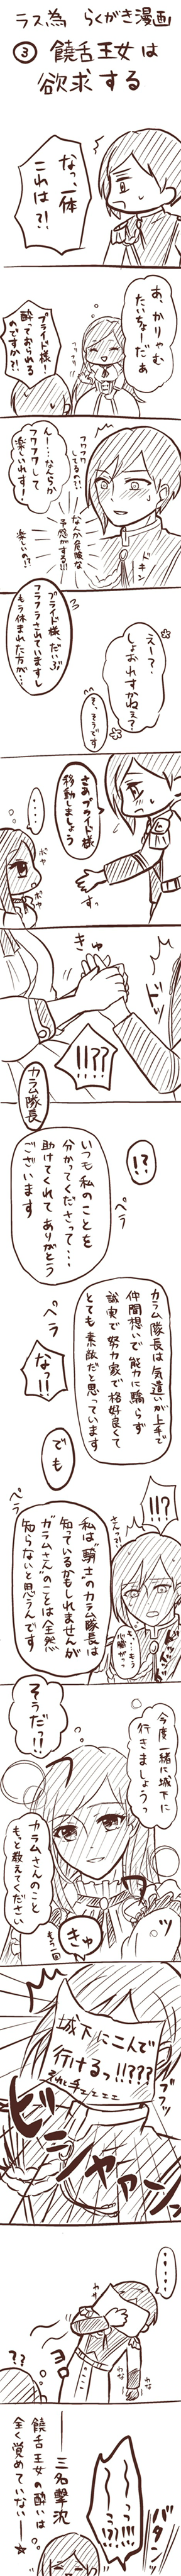 ラス為 らくがき漫画
③ 饒舌王女は
欲求する
なっ、一体
これは?!
あ、かりゃむ
たいちょーだぁ
プライド様!
酔っておられる
のですか?!
フワフワしてる?!
なんか危険な
予感がする!!!
ドキン
ん…なんらか
フワフワして
楽しいれす!
楽しい?!
えー?
しょおれすかねぇ?
そ、そうです
プライド様、だいぶ
フラフラされていますし
もう休まれた方が…
さあプライド様
移動しましょう
すっ
・・・・
ポヤ
ポヤ
きゅ
ドッ
!!??
カラム隊長
!?
いつも私のことを
分かてくださって…
助けてくれてありがとう
ございます
ペラ
カラム隊長は気遣いが上手で
仲間想いで能力に驕らず
誠実で努力家で格好良くて
とても素敵だと思っています
ペラ
なっ!!
でも
ペラ
!!?
さんっ?!
…もう
心臓がっ
私は"騎士のカラム隊長は
知っているかもしれませんが
"カラムさん"のことは全然
知らないと思うんです
そうだっ!!
今度一緒に城下に
行きましょうっ
カラムさんのこと
もっと教えてください
きゅ
もう一回
ワッ
城下に二人で
行けるっ!!???
それって
ブフッ
ビシャヤァンッ
・・・・・
わな
わな
??
ヨロ
バターン
っっっ!?!!!
――三名撃沈
饒舌王女の酔いは
全く覚めていない―☆